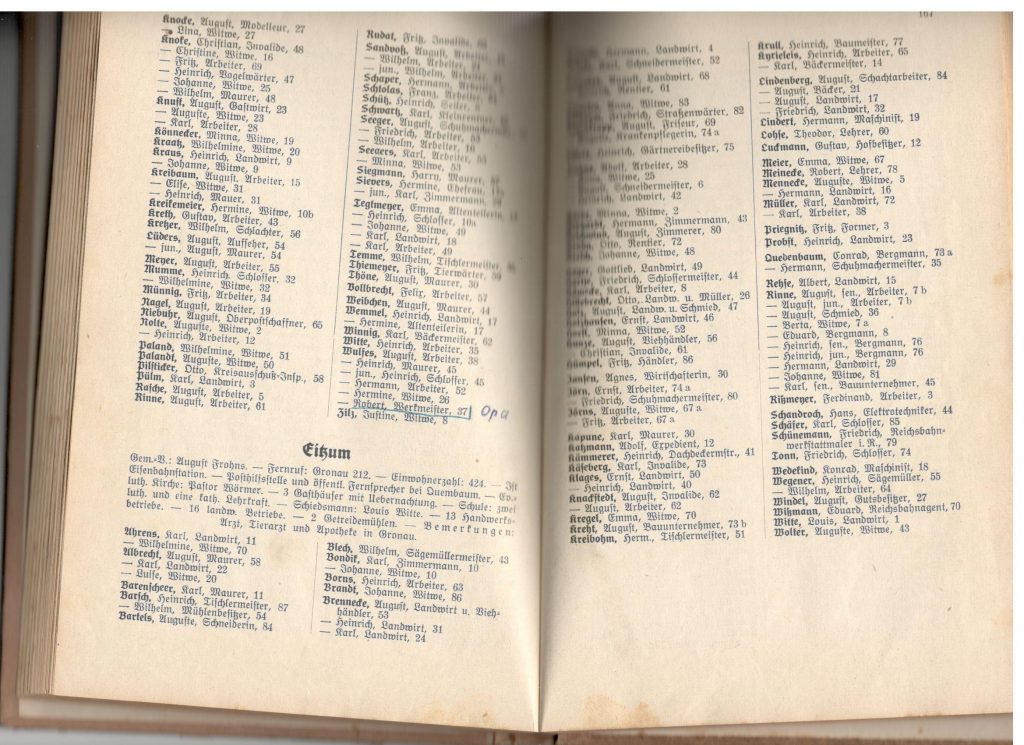 Knocke, August, Modelleur, 27
— Lina, Witwe, 27
Knoke, Christian, Invalide, 48
— Christine, Witwe, 16
— Fritz, Arbeiter, 69
— Heinrich, Vogelwärter, 47
— Johanne, Witwe, 25
— Wilhelm, Maurer, 48
Knust, August, Gastwirt, 23
— Auguste, Witwe, 23
— Karl, Arbeiter, 28
Könnecker, Minna, Witwe, 19
Kraatz, Wilhelmine, Witwe, 20
Kraus, Heinrich, Landwirt, 9
— Johanne, Witwe, 9
Kreibaum, August, Arbeiter, 15
— Elise, Witwe, 31
— Heinrich, Mauer, 31
Kreikemeier, Hermine, Witwe, 10b
Kreth, Gustav, Arbeiter, 43
Kretzer, Wilhelm, Schlachter, 56
Lüders, August, Aufseher, 54
— jun., August, Maurer, 54
Meyer, August, Arbeiter, 55
Mumme, Heinrich, Schlosser, 32
— Wilhelmine, Witwe, 32
Münnig, Fritz, Arbeiter, 34
Nagel, August, Arbeiter, 19
Niebuhr, August, Oberpostschaffner, 65
Nolte, Auguste, Witwe, 2
— Heinrich, Arbeiter, 12
Paland, Wilhelmine, Witwe, 51
Palandt, Auguste, Witwe, 50
Pilsticker, Otto, Kreisausschuß-Insp., 58
Pülm, Karl, Landwirt, 3
Rasche, August, Arbeiter, 5
Rinne, August, Arbeiter, 61
Rudat, Fritz, Invalide,
Sandvoß, August, Arbeiter,
— Wilhelm, Arbeiter,
— jun., Wilhelm, Arbeiter,
Schaper, Hermann, Arbeiter,
Schtolas, Franz, Arbeiter,
Schütz, Heinrich, Seiler,
Schwartz, Karl, Kleinrentner,
Seeger, August, Schuhmachermeister,
— Friedrich, Arbeiter,
— Wilhelm, Arbeiter,
Seegers, Karl, Arbeiter, 53
— Minna, Witwe, 53
Siegmann, Harry, Maurer,
Sievers, Hermine, Ehefrau,
— jun., Karl, Zimmermann,
Tegtmeyer, Emma, Altenteilerin,
— Heinrich, Schlosser, 10a
— Johanne, Witwe, 49
— Karl, Landwirt, 18
— Karl, Arbeiter, 49
Temme, Wilhelm, Tischlermeister,
Thiemeyer, Fritz, Tierwärter, 59
Thöne, August, Maurer, 30
Vollbrecht, Felix, Arbeiter, 57
Weibchen, August, Maurer, 44
Wemmel, Heinrich, Landwirt, 17
— Hermine, Altenteilerin, 17
Winnig, Karl, Bäckermeister, 62
Witte, Heinrich, Arbeiter, 35
Wulfes, August, Arbeiter, 38
— Heinrich, Maurer, 45
— jun., Heinrich, Schlosser, 45
— Hermann, Arbeiter, 52
— Hermine, Witwe, 26
— Robert, Werkmeister, 37 Opa
Zilz, Justine, Witwe, 8
Eitzum
Gem.-V.: August Frohns. — Fernruf: Gronau 212. — Einwohnerzahl: 424. — Ist
Eisenbahnstation. — Posthilfsstelle und öffentl. Fernsprecher bei Quembaum. — Ev.-
luth. Kirche: Pastor Wörmer. — 3 Gasthäuser mit Uebernachtung. — Schule: zwei
luth. und eine kath. Lehrkraft. — Schiedsmann: Louis Witte. — 13 Handwerks-
betriebe. — 16 landw. Betriebe. — 2 Getreidemühlen. — Bemerkungen:
Arzt, Tierarzt und Apotheke in Gronau.
Ahrens, Karl, Landwirt, 11
— Wilhelmine, Witwe, 70
Albrecht, August, Maurer, 58
— Karl, Landwirt, 22
— Luise, Witwe, 20
Barenscheer, Karl, Maurer, 11
Barsch, Heinrich, Tischlermeister, 87
— Wilhelm, Mühlenbesitzer, 54
Bartels, Auguste, Schneiderin, 84
Blech, Wilhelm, Sägemüllermeister, 43
Bondik, Karl, Zimmermann, 10
— Johanne, Witwe, 10
Borns, Heinrich, Arbeiter, 63
Brandt, Johanne, Witwe, 86
Brennecke, August, Landwirt u. Vieh-
händler, 53
— Heinrich, Landwirt, 31
— Karl, Landwirt, 24
167
Hermann, Landwirt, 4
Karl, Schneidermeister, 52
August, Landwirt, 68
Rentier, 61
Witwe, 83
Friedrich, Straßenwärter, 82
August, Friseur, 69
Krankenpflegerin, 74a
Heinrich, Gärtnereibesitzer, 75
Adolf, Arbeiter, 28
Witwe, 25
Schneidermeister, 6
Landwirt, 42
Minna, Witwe, 2
Hermann, Zimmermann, 43
August, Zimmerer, 80
Otto, Rentier, 72
Johanne, Witwe, 48
Gottlieb, Landwirt, 49
Friedrich, Schlossermeister, 44
Karl, Arbeiter, 8
Otto, Landw. u. Müller, 26
August, Landw. u. Schmied, 47
Ernst, Landwirt, 46
Minna, Witwe, 52
August, Viehhändler, 56
Christian, Invalide, 61
Hümpel, Fritz, Händler, 86
Jansen, Agnes, Wirtschafterin, 30
Jörn, Ernst, Arbeiter, 74a
— Friedrich, Schuhmachermeister, 80
Jörns, Auguste, Witwe, 67a
— Fritz, Arbeiter, 67a
Kapune, Karl, Maurer, 30
Katzmann, Adolf, Expedient, 12
Kämmerer, Heinrich, Dachdeckermstr., 41
Käseberg, Karl, Invalide, 73
Klages, Ernst, Landwirt, 50
— Heinrich, Landwirt, 40
Knackstedt, August, Invalide, 62
— August, Arbeiter, 62
Kregel, Emma, Witwe, 70
Krehl, August, Bauunternehmer, 73b
Kreibohm, Herm., Tischlermeister, 51
Krull, Heinrich, Baumeister, 77
Kyrieleis, Heinrich, Arbeiter, 65
— Karl, Bäckermeister, 14
Lindenberg, August, Schachtarbeiter, 84
— August, Bäcker, 21
— August, Landwirt, 17
— Friedrich, Landwirt, 32
Lindert, Hermann, Maschinist, 19
Lohse, Theodor, Lehrer, 60
Luckmann, Gustav, Hofbesitzer, 12
Meier, Emma, Witwe, 67
Meinecke, Robert, Lehrer, 78
Mennecke, Auguste, Witwe, 5
— Hermann, Landwirt, 16
Müller, Karl, Landwirt, 72
— Karl, Arbeiter, 38
Priegnitz, Fritz, Former, 3
Probst, Heinrich, Landwirt, 23
Quedenbaum, Conrad, Bergmann, 73a
— Hermann, Schuhmachermeister, 35
Rehse, Albert, Landwirt, 15
Rinne, August, sen., Arbeiter, 7b
— August, jun., Arbeiter, 7b
— August, Schmied, 36
— Berta, Witwe, 7a
— Eduard, Bergmann, 8
— Heinrich, sen., Bergmann, 76
— Heinrich, jun., Bergmann, 76
— Hermann, Landwirt, 29
— Johanne, Witwe, 81
— Karl, sen., Bauunternehmer, 45
Ritzmeyer, Ferdinand, Arbeiter, 3
Schandroch, Hans, Elektrotechniker, 44
Schäfer, Karl, Schlosser, 85
Schünemann, Friedrich, Reichsbahn-
werkstattmaler i. R., 79
Tonn, Friedrich, Schlosser, 74
Wedekind, Konrad, Maschinist, 18
Wegener, Heinrich, Sägemüller, 55
— Wilhelm, Arbeiter, 64
Windel, August, Gutsbesitzer, 27
Witzmann, Eduard, Reichsbahnagent, 70
Witte, Louis, Landwirt, 1
Wolter, Auguste, Witwe, 43